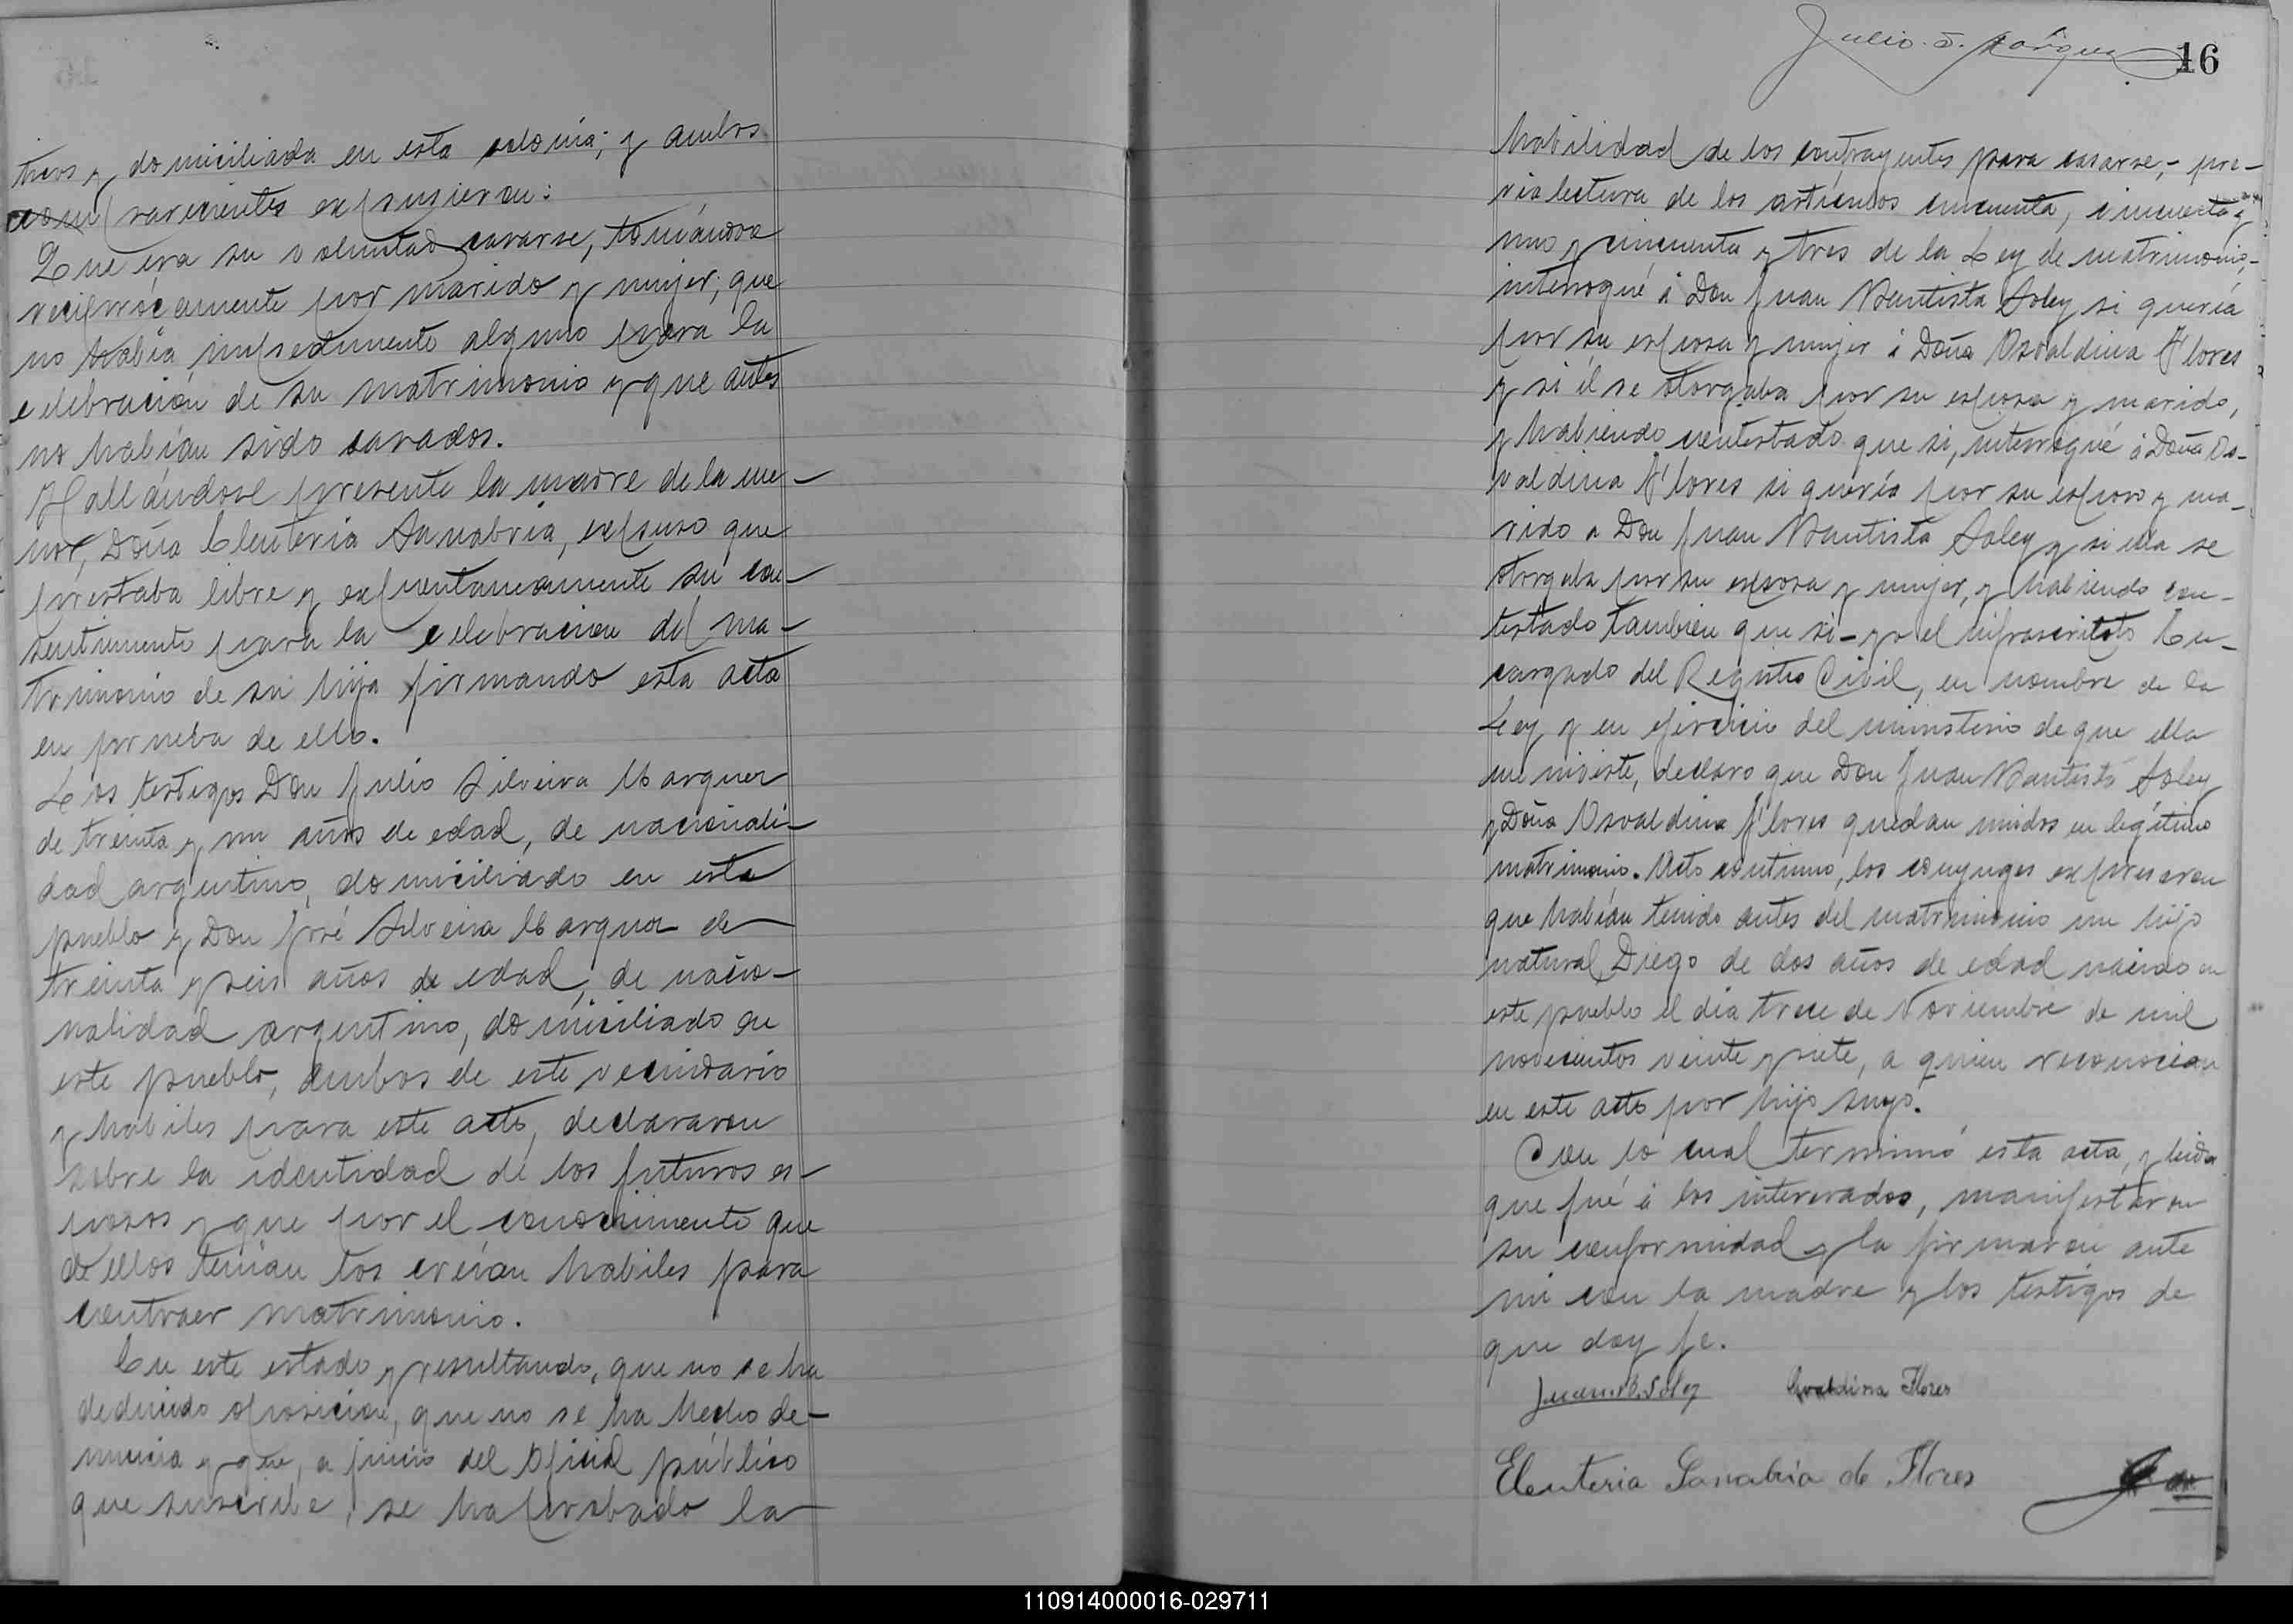 tros y domiciliada en esta colonia; y ambos
comparecientes expusieron:
Que era su voluntad casarse, tomándose
recíprocamente por marido y mujer; que
no había impedimento alguno para la
celebración de su matrimonio y que antes
no habían sido casados.
Hallándose presente la madre de la me-
nor, Doña Eleuteria Sanabria, expuso que
prestaba libre y expontaneamente su con-
sentimiento para la celebracion del ma-
trimonio de su hija firmando esta acta
en prueba de ello.
Los testigos Don Julio Silveira Marquez
de treinta y un años de edad, de nacionali-
dad argentino, domiciliado en este
pueblo y Don José Silveira Marquez de
treinta y seis años de edad, de nacio-
nalidad argentino, domiciliado en
este pueblo, ambos de este vecindario
y habiles para este acto, declararon
sobre la identidad de los futuros es-
posos y que por el conocimiento que
de ellos tenían los creían habiles para
contraer matrimonio.
En este estado y resultando, que no se ha
deducido oposicion, que no se ha hecho de-
nuncia y que, a juicio del oficial público
que suscribe, se ha probado la
Julio S. Márquez
16
habilidad de los contrayentes para casarse,- pre-
via lectura de los artículos cincuenta, cincuenta y
uno y cincuenta y tres de la Ley de matrimonio,-
interrogué á Don Juan Bautista Soley si quería
por su esposa y mujer á Doña Osvaldina Flores
y si él se otorgaba por su esposo y marido,
y habiendo contestado que si, interrogué á Doña Os-
valdina Flores si quería por su esposo y ma-
rido a Don Juan Bautista Soley y si ella se
otorgaba por su esposa y mujer, y habiendo con-
testado tambien que si- yo el infrascrito En-
cargado del Registro Civil, en nombre de la
Ley y en ejercicio del ministerio de que ella
me inviste, declaro que Don Juan Bautista Soley
y Doña Osvaldina Flores quedan unidos en legítimo
matrimonio. Acto continuo, los conyuges expresaron
que habían tenido antes del matrimonio un hijo
natural Diego de dos años de edad nacido en
este pueblo el día trece de Noviembre de mil
novecientos veinte y siete, a quien reconocian
en este acto por hijo suyo.
Con lo cual terminó esta acta, y leida
que fué á los interesados, manifestaron
su conformidad y la firmaron ante
mi con la madre y los testigos de
que doy fe.
Juan B. Soley Osvaldina Flores
Eleuteria Sanabria de Flores
110914000016-029711